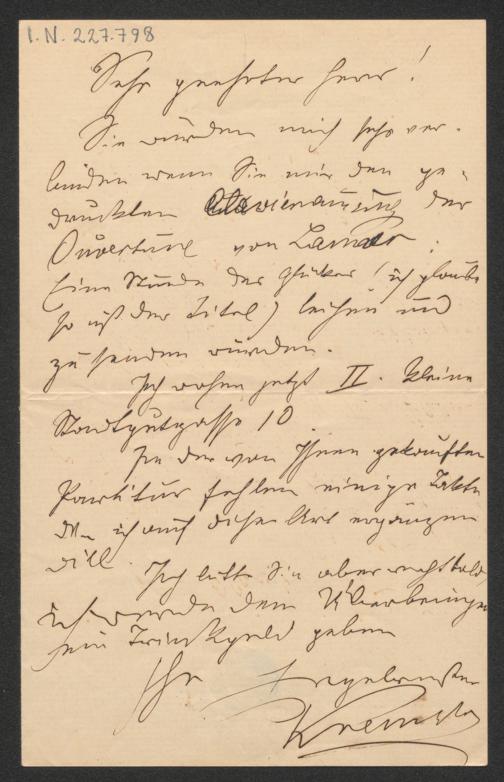 I. N. 227.798
Sehr geehrter Herr!
Sie würden mich sehr ver-
binden wenn Sie mir den ge-
druckten Clavierauszug der
Ouverture von Lanner:
Eine Stunde des Glückes (ich glaube
so ist der Titel) leihen und
zusenden würden.
Ich wohne jetzt II. kleine
Stadtgutgasse 10.
In der von Ihnen gekauften
Partitur fehlen einige Takte
die ich auf diese Art ergänzen
will.
Ich bitte Sie aber recht bald
ich werde dem Überbringer
ein Trinkgeld geben
Ihr Ergebenster
Kremser